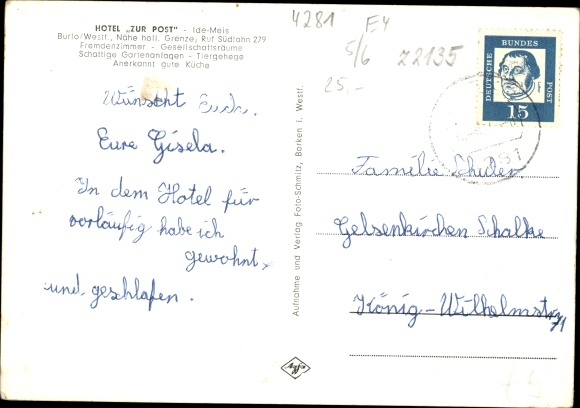 HOTEL „ZUR POST" - Ide-Meis
Burlo/Westf., Nähe holl. Grenze, Ruf Südlohn 279
Fremdenzimmer - Gesellschaftsräume
Schattige Gartenanlagen - Tiergehege
Anerkannt gute Küche
Wünscht Euch.
Eure Gisela.
In dem Hotel für
vorläufig habe ich
gewohnt,
und geschlafen.
Aufnahme und Verlag Foto-Schmitz, Borken i. Westf.
4281 E4
5/6 Z2135
25,-
DEUTSCHE BUNDESPOST
15
Familie
Gelsenkirchen Schalke
König-Wilhelmstr 71
Agfa